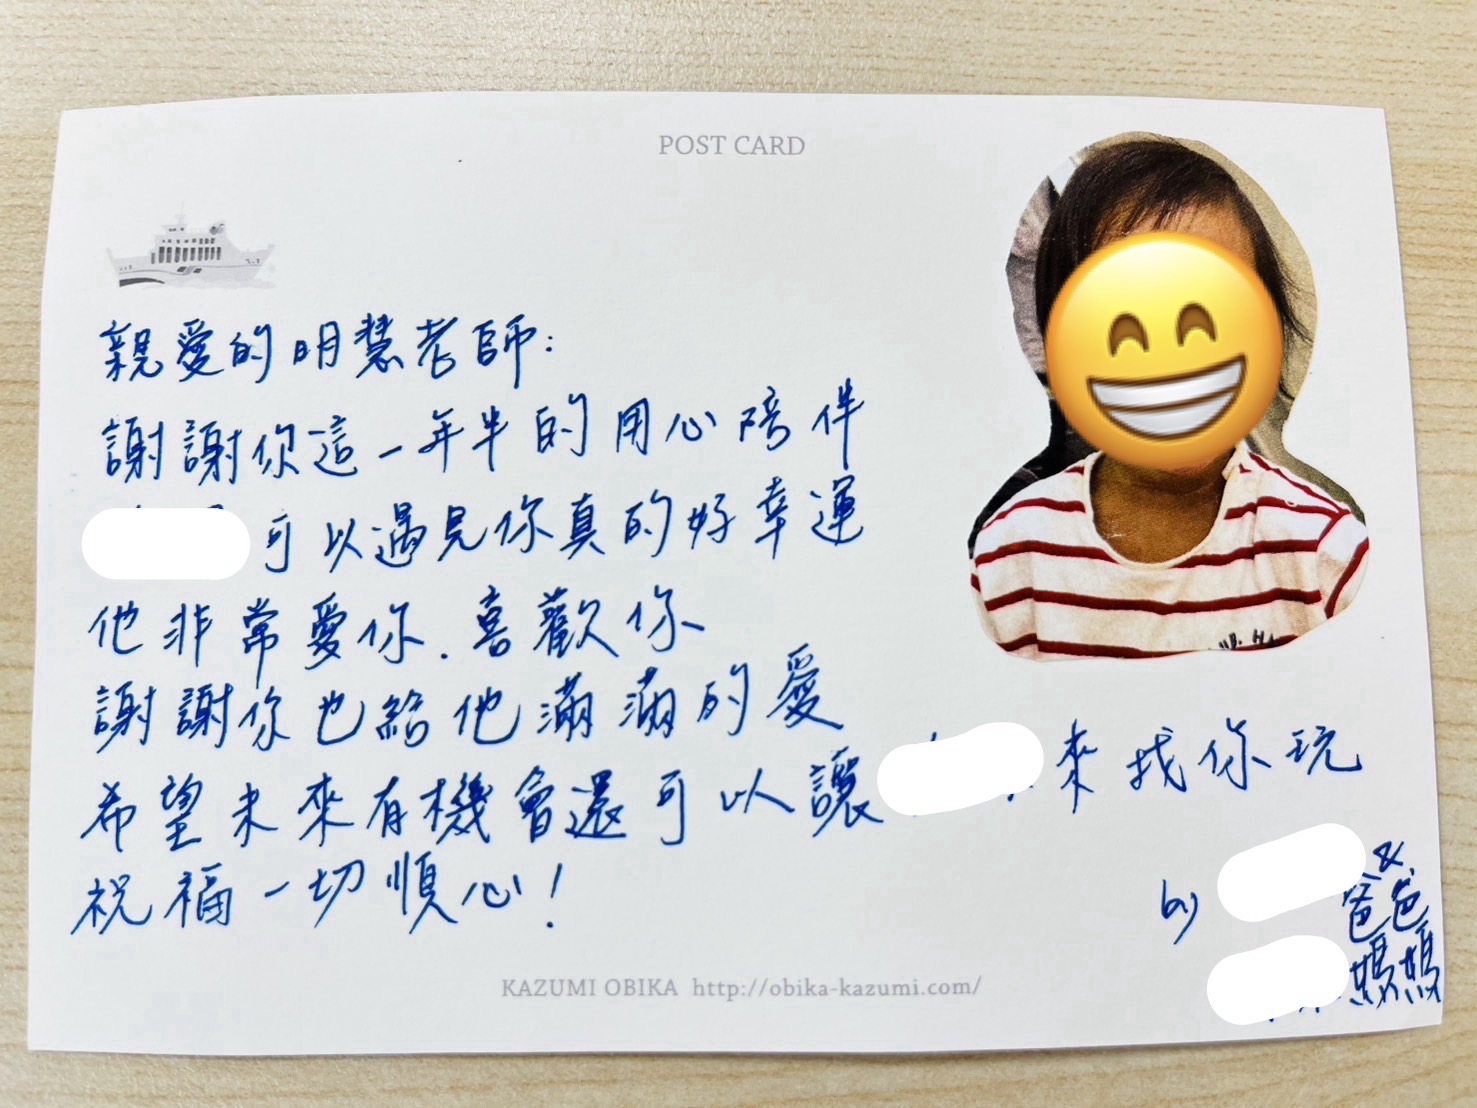 POST CARD
親愛的明慧老師:
謝謝你這一年半的用心陪伴
可以遇見你真的好幸運
他非常愛你.喜歡你
謝謝你也給他滿滿的愛
希望未來有機會還可以讓 來找你玩
祝福一切順心!
by &
爸爸
媽媽
KAZUMI OBIKA http://obika-kazumi.com/